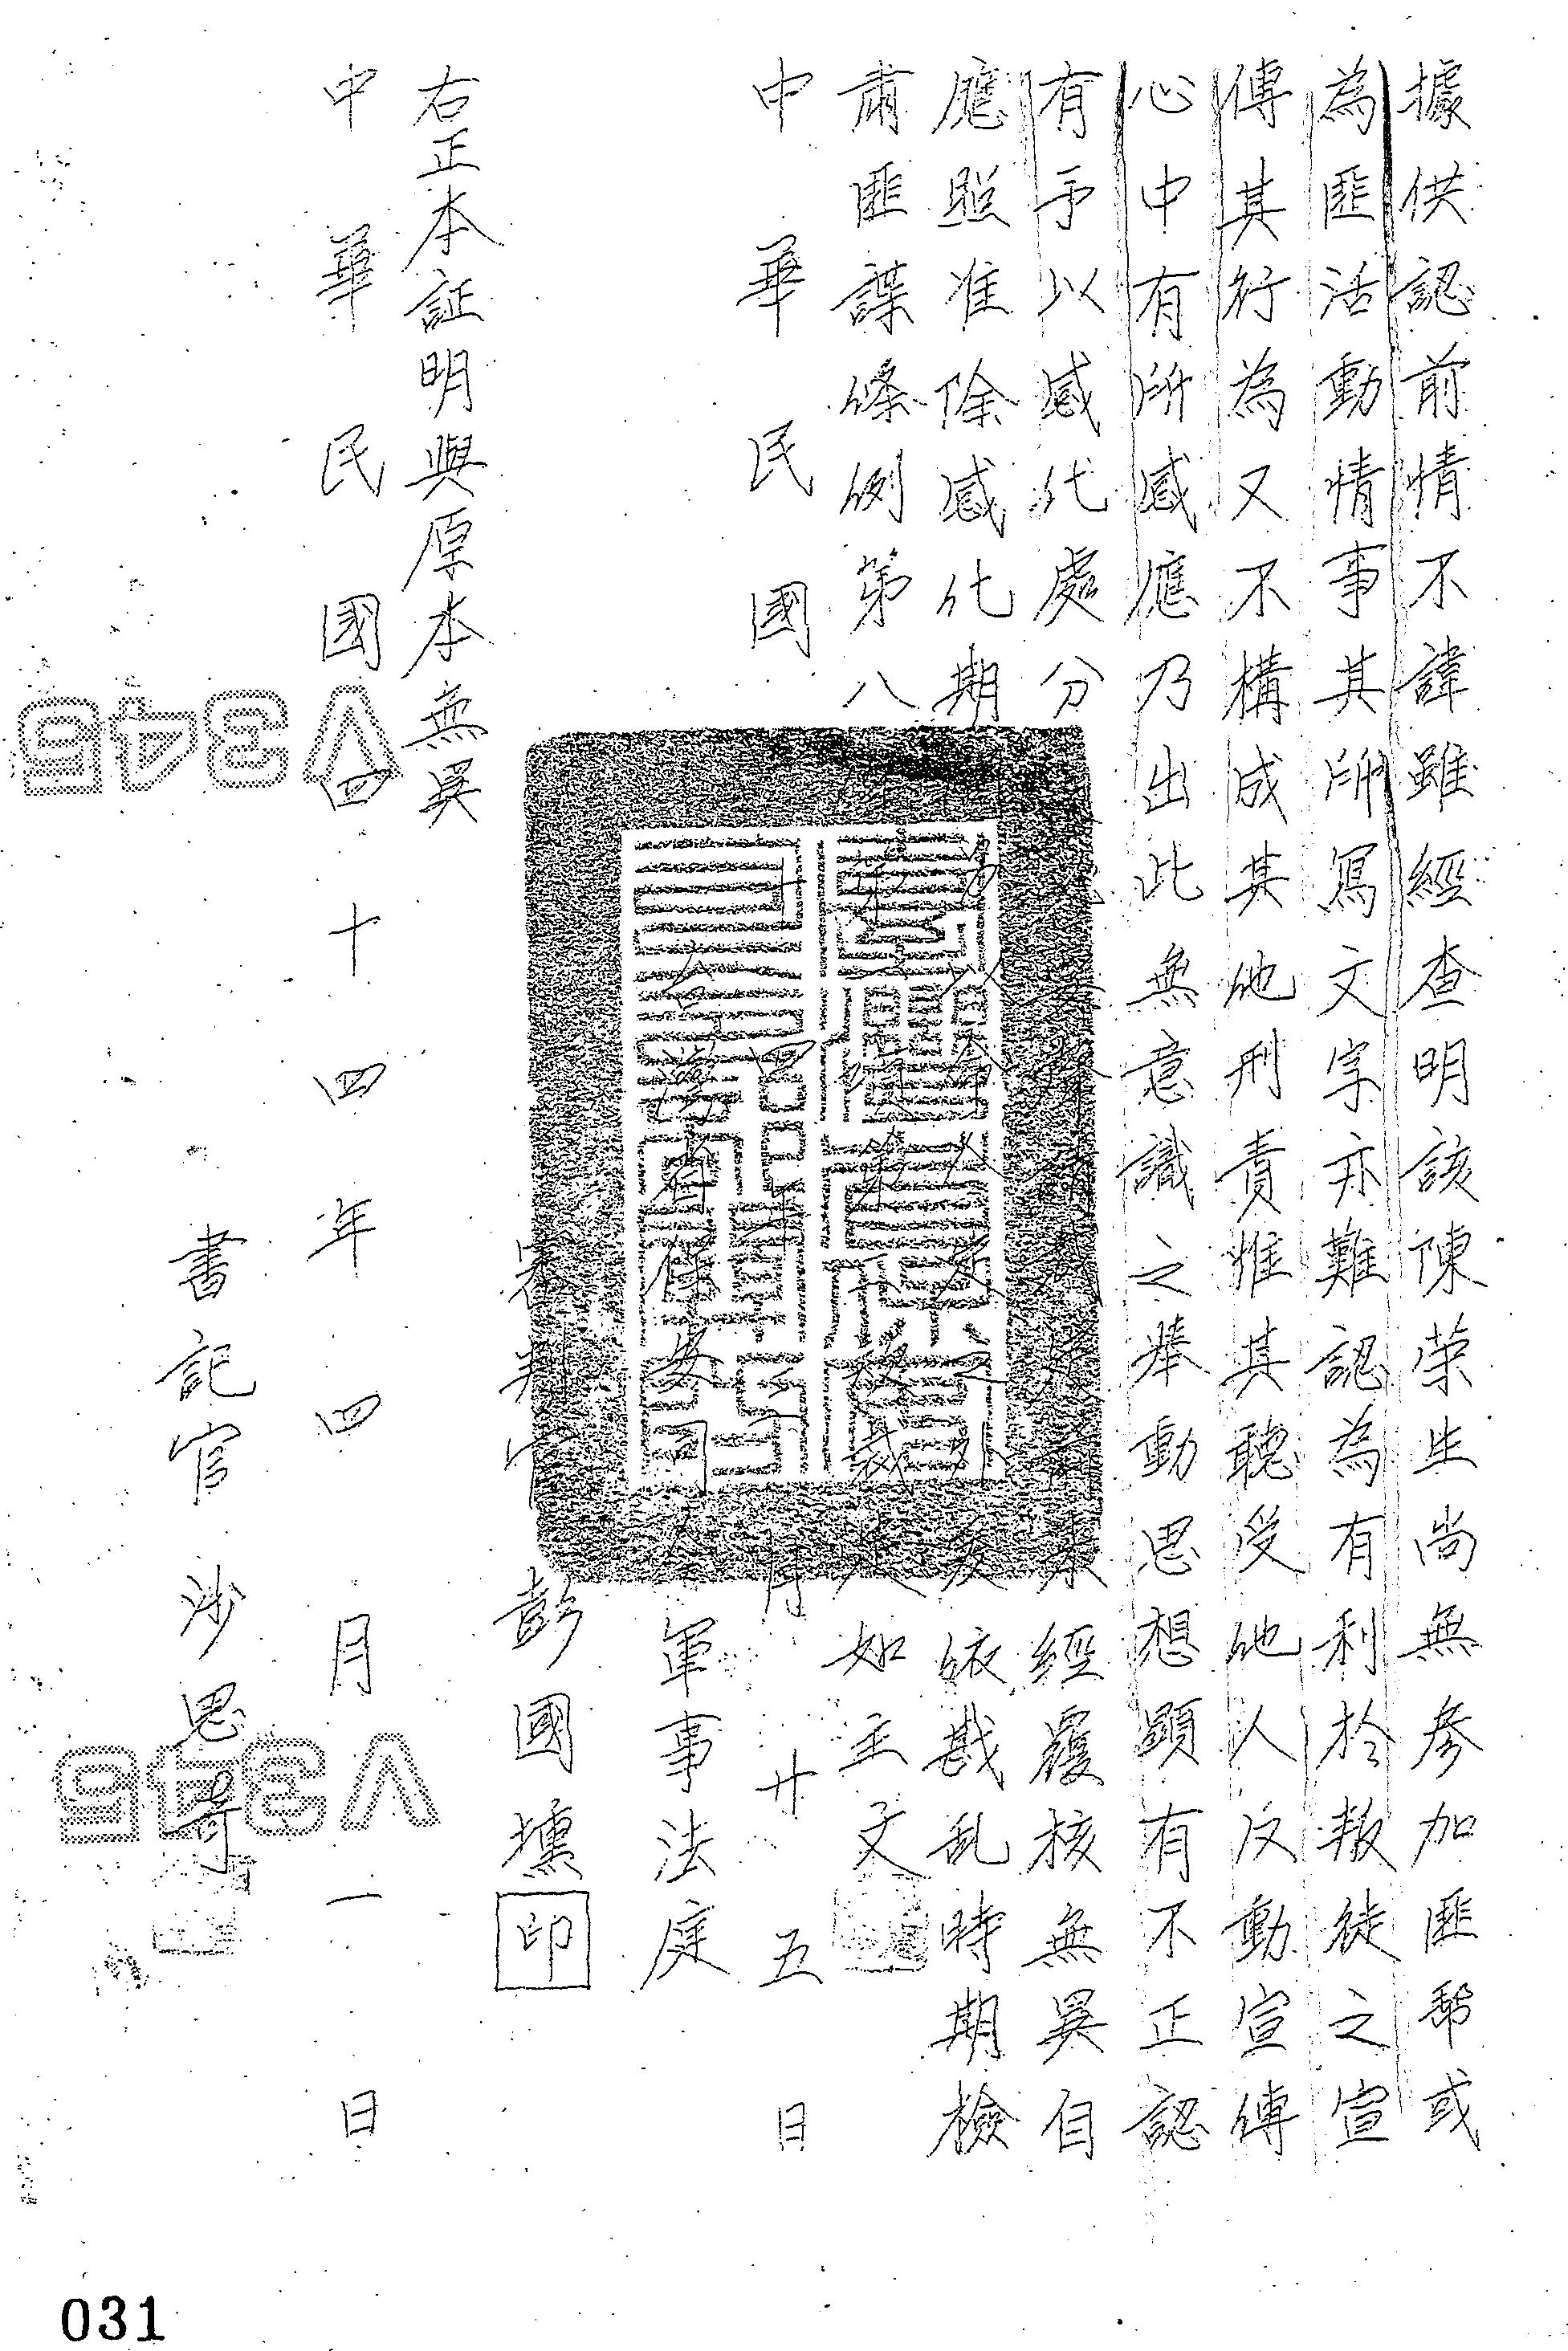 據供認前情不諱雖經查明該陳荣生尚無參加匪帮或
為匪活動情事其所寫文字亦難認為有利於叛徒之宣
傳其行為又不構成其他刑責惟其聽受他人反動宣傳
心中有所感應乃出此無意識之舉動思想顕有不正認
有予以感化處分 經覆核無異自
應照准除感化期 以命令定之外爰依戡亂時期檢
肅匪諜條例第八條 裁定如主文
中華民國四十四年三月廿五日
台灣省保安司令 軍事法庭
審判官 彭國壎 印
右正本証明與原本無異
中華民國四十四年四月一日
書記官 沙思奇
V345
V345
031